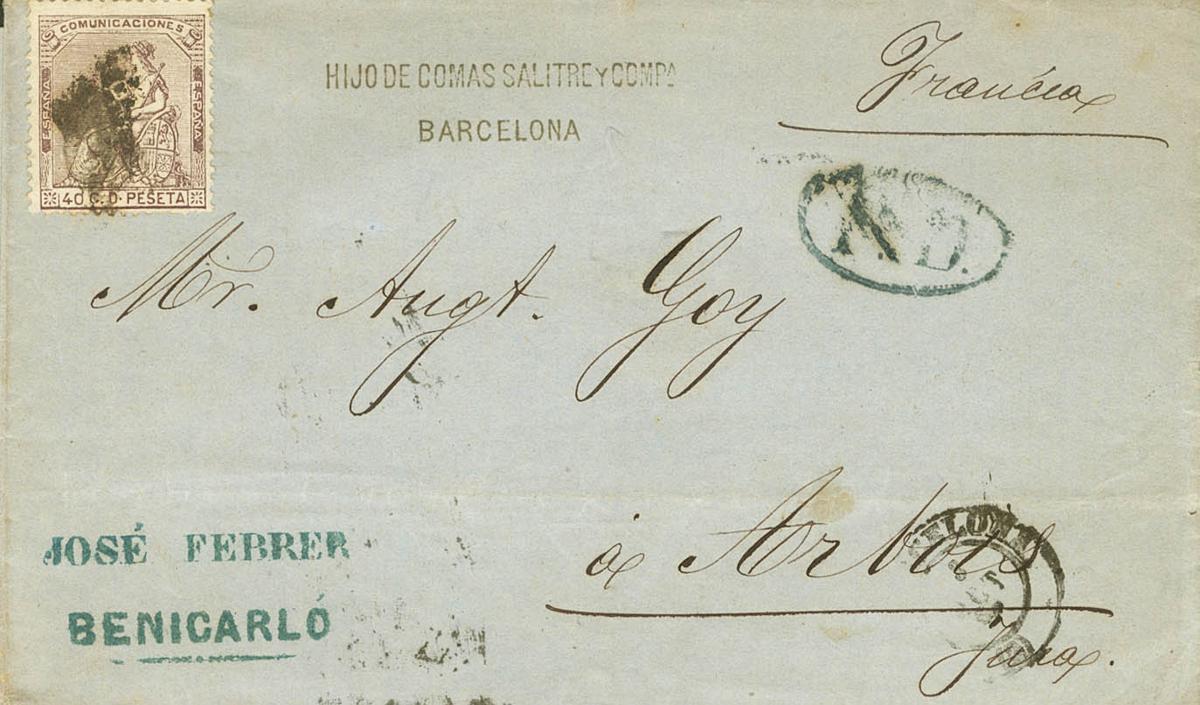 COMUNICACIONES
ESPAÑA ESPAÑA
40 C. D. PESETA
HIJO DE COMAS SALITRE Y COMPA
BARCELONA
Francia
Mr. Augt. Goy
à Arbois
Jura.
JOSÉ FEBRER
BENICARLÓ